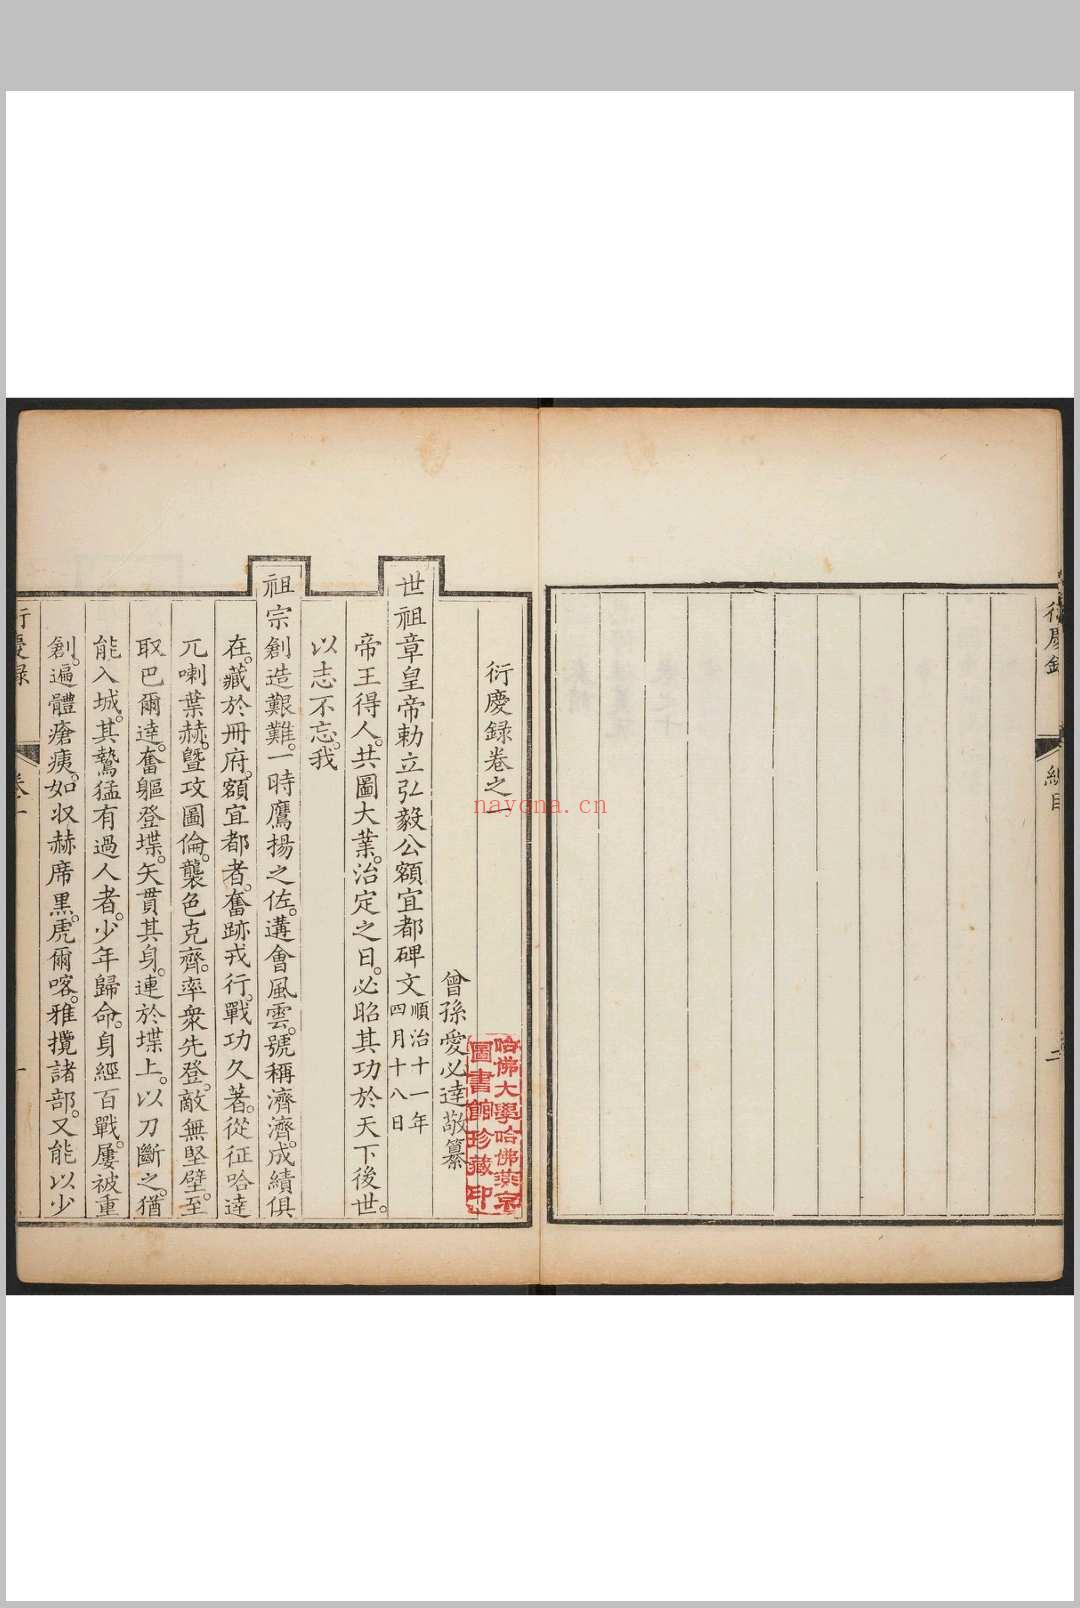 衍慶錄
總目
二
衍慶録卷之一
曾孫愛必達敬纂
世祖章皇帝勅立弘毅公額宜都碑文順治十一年四月十八日
帝王得人。共圖大業。治定之日。必昭其功於天下後世。
以志不忘。我
祖宗創造艱難。一時鷹揚之佐。遘會風雲。號稱濟濟。成績俱
在。藏於冊府。額宜都者。奮跡戎行。戰功久著。從征哈達
兀喇葉赫。暨攻圖倫。襲色克齊。率衆先登。敵無堅壁。至
取巴爾達。奮軀登堞。矢貫其身。連於堞上。以刀斷之。猶
能入城。其驁猛有過人者。少年歸命。身經百戰。屢被重
創。遍體瘡痍。如収赫席黒。虎爾喀。雅攬諸部。又能以少
衍慶録
卷一
一
哈佛大學哈佛燕京
圖書館珍藏印
nayona.cn